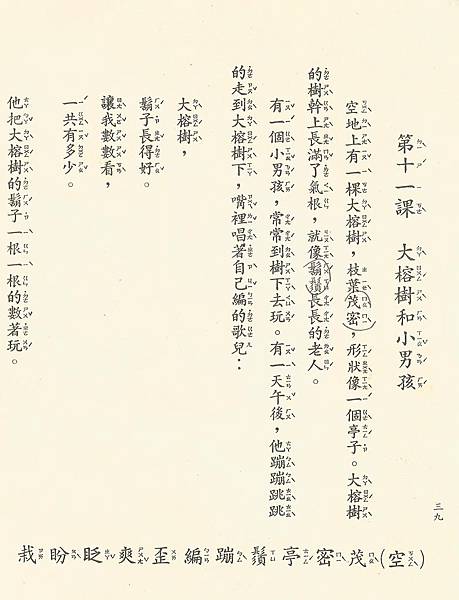 第十一課　大榕樹和小男孩
空地上有一棵大榕樹，枝葉茂密，形狀像一個亭子。大榕樹
的樹幹上長滿了氣根，就像鬍鬚長長的老人。
有一個小男孩，常常到樹下去玩。有一天午後，他蹦蹦跳跳
的走到大榕樹下，嘴裡唱著自己編的歌兒：
大榕樹，
鬍子長得好。
讓我數數看，
一共有多少。
他把大榕樹的鬍子一根一根的數著玩。
三九
(空)茂密亭鬚蹦編歪爽眨盼栽